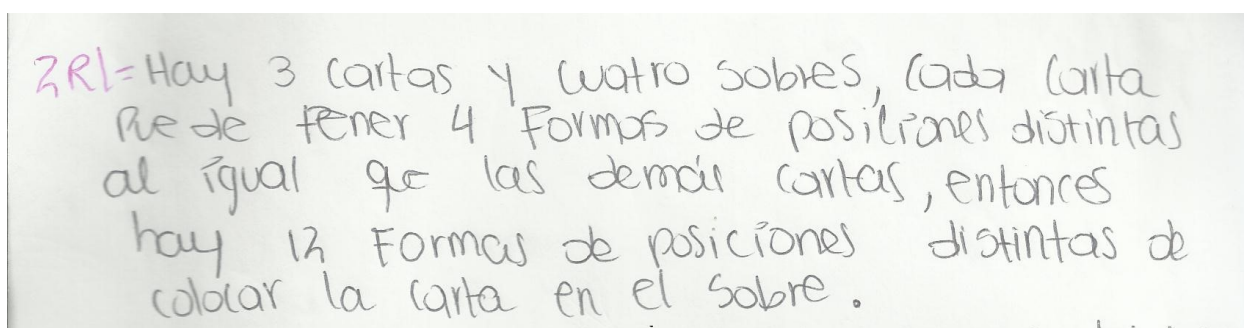 2R1=Hay 3 cartas y cuatro sobres, cada carta
Puede tener 4 Formas de posiciones distintas
al igual que las demás cartas, entonces
hay 12 Formas de posiciones distintas de
colocar la carta en el sobre.